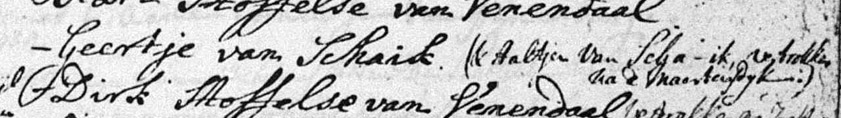 Stoffelse van Venendaal
- Geertje van Schaik. (& Aaltjen Van Scha-ik, vertrokken
na Maertensdyk.)
Dirk Stoffelse van Venendaal